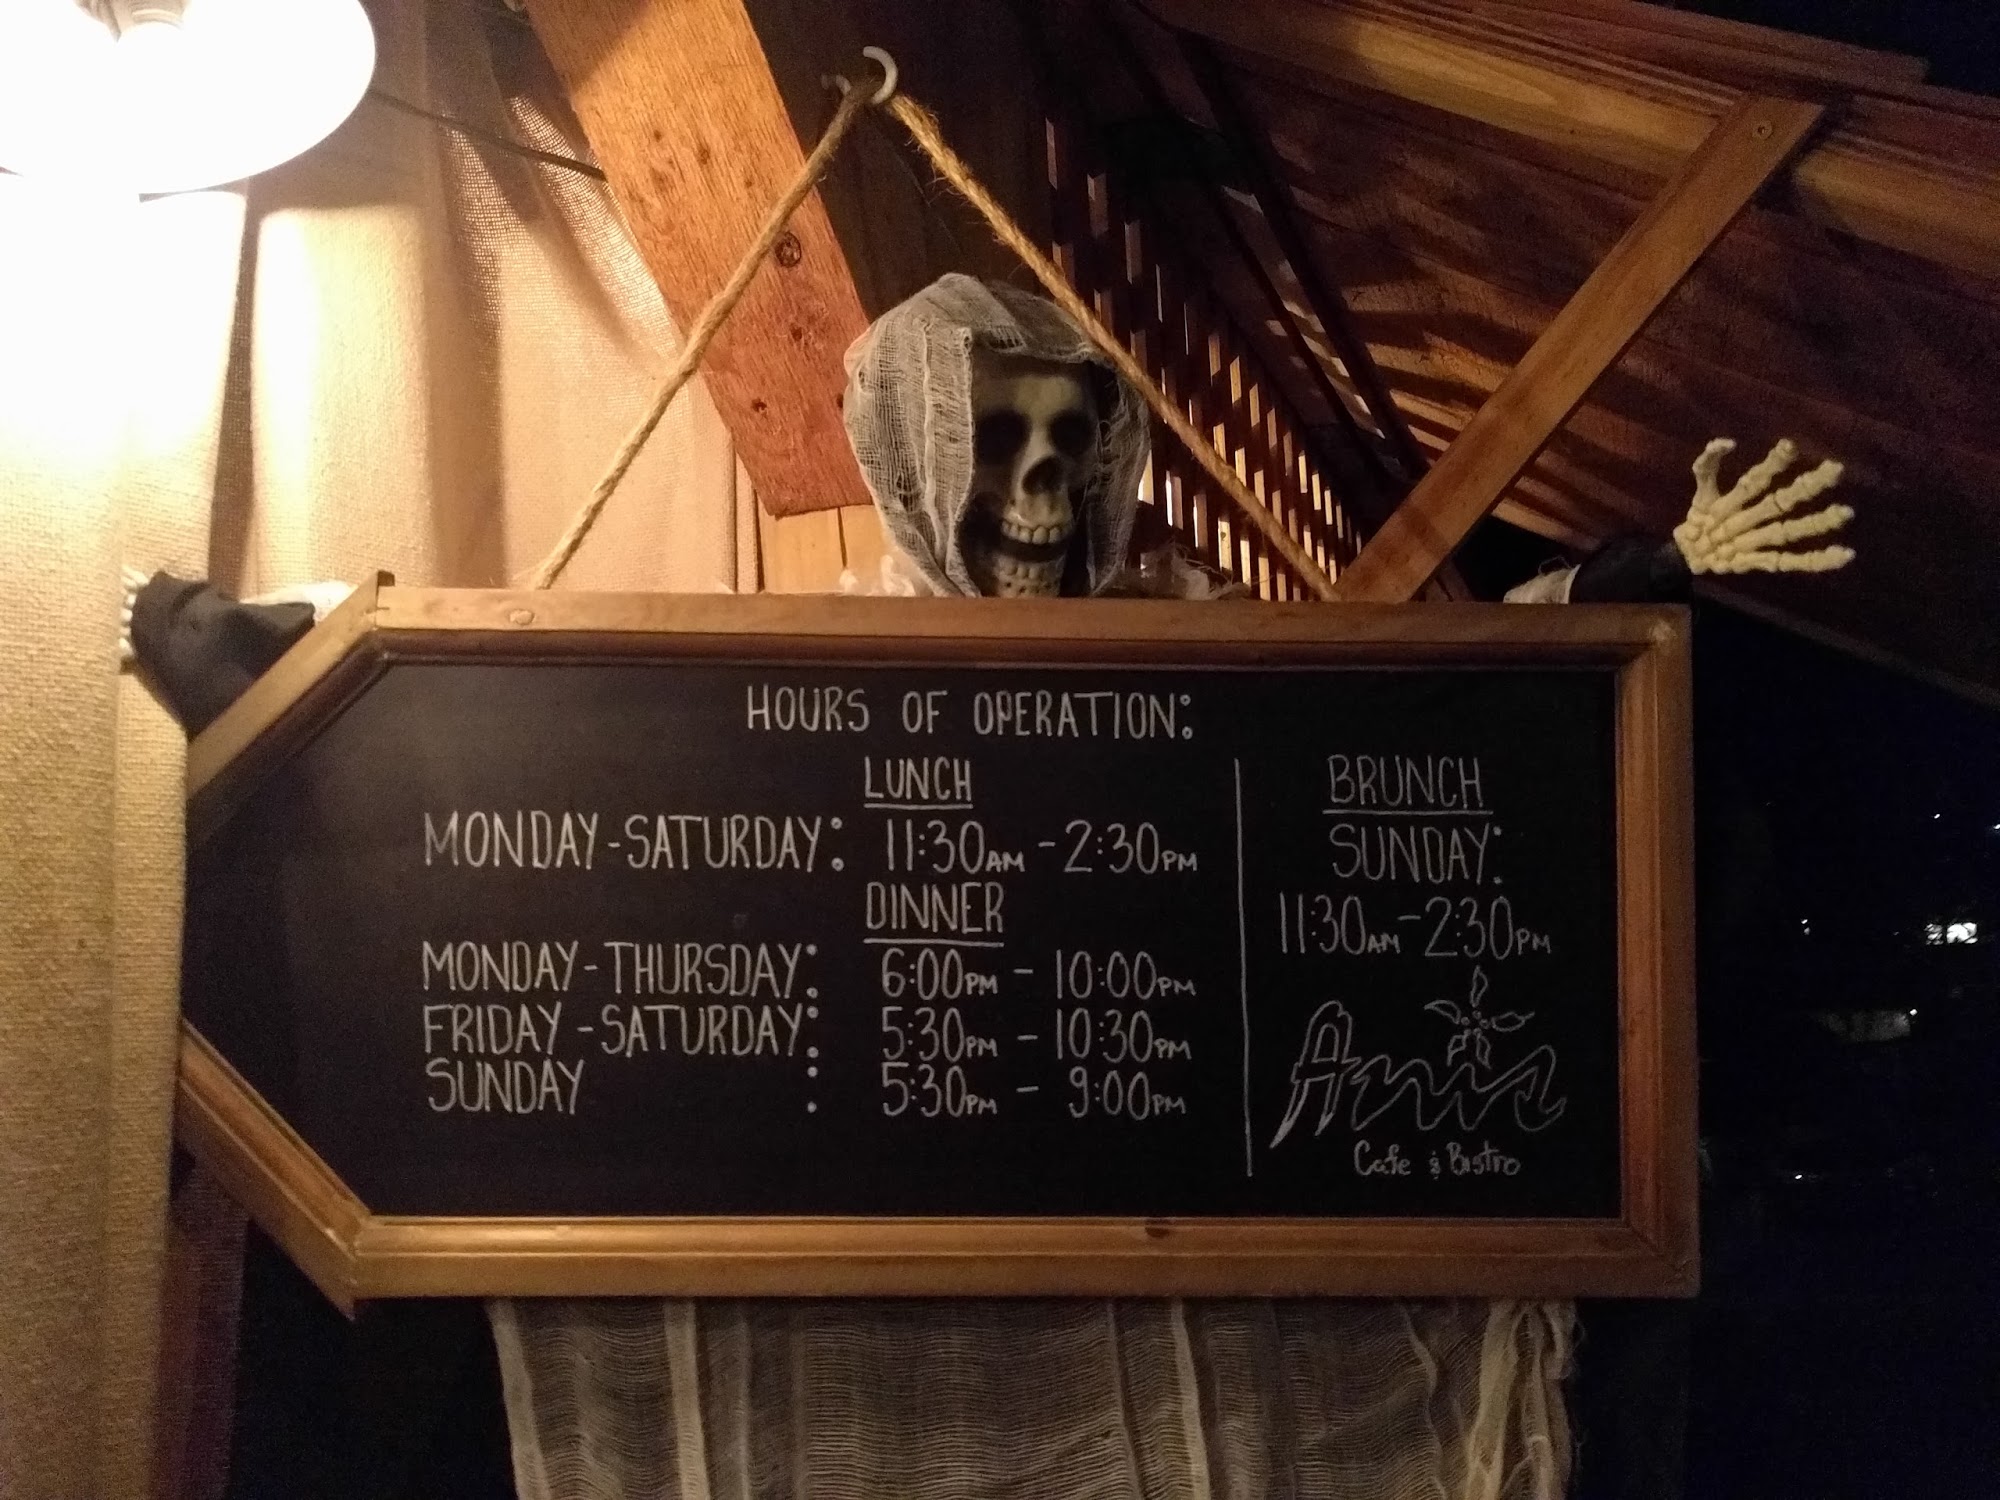 HOURS OF OPERATION:
LUNCH
MONDAY-SATURDAY: 11:30AM - 2:30PM
DINNER
MONDAY-THURSDAY: 6:00PM - 10:00PM
FRIDAY-SATURDAY: 5:30PM - 10:30PM
SUNDAY : 5:30PM - 9:00PM
BRUNCH
SUNDAY:
11:30AM-2:30PM
Anis
Cafe & Bistro